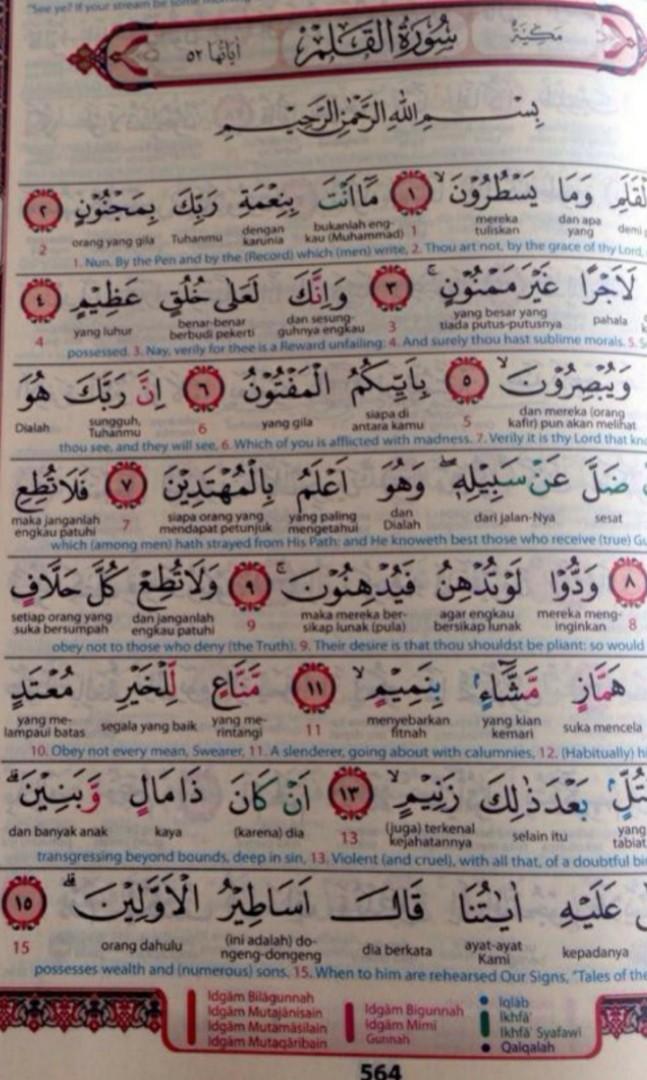 "See ye? If your stream be some
سُورَةُ الْقَلَمِ مَكِّيَّةٌ اٰيَاتُهَا ٥٢
بِسْمِ اللّٰهِ الرَّحْمٰنِ الرَّحِيْمِ
الْقَلَمِ وَمَا يَسْطُرُوْنَۙ ١ مَآ اَنْتَ بِنِعْمَةِ رَبِّكَ بِمَجْنُوْنٍ ٢
demi dan apa yang mereka tuliskan 1 bukanlah engkau (Muhammad) dengan karunia Tuhanmu orang yang gila 2
1. Nun. By the Pen and by the (Record) which (men) write, 2. Thou art not, by the grace of thy Lord,
لَاَجْرًا غَيْرَ مَمْنُوْنٍۚ ٣ وَاِنَّكَ لَعَلٰى خُلُقٍ عَظِيْمٍ ٤
pahala yang besar yang tiada putus-putusnya 3 dan sesungguhnya engkau benar-benar berbudi pekerti yang luhur 4
possessed. 3. Nay, verily for thee is a Reward unfailing: 4. And surely thou hast sublime morals. 5.
وَيُبْصِرُوْنَۙ ٥ بِاَيِّىكُمُ الْمَفْتُوْنُ ٦ اِنَّ رَبَّكَ هُوَ
dan mereka (orang kafir) pun akan melihat 5 siapa di antara kamu yang gila 6 sungguh, Tuhanmu Dialah
thou see, and they will see, 6. Which of you is afflicted with madness. 7. Verily it is thy Lord that
ضَلَّ عَنْ سَبِيْلِهٖۖ وَهُوَ اَعْلَمُ بِالْمُهْتَدِيْنَ ٧ فَلَا تُطِعِ
sesat dari jalan-Nya dan Dialah yang paling mengetahui siapa orang yang mendapat petunjuk 7 maka janganlah engkau patuhi
which (among men) hath strayed from His Path: and He knoweth best those who receive (true)
٨ وَدُّوْا لَوْ تُدْهِنُ فَيُدْهِنُوْنَۚ ٩ وَلَا تُطِعْ كُلَّ حَلَّافٍ
8 mereka menginginkan agar engkau bersikap lunak maka mereka bersikap lunak (pula) 9 dan janganlah engkau patuhi setiap orang yang suka bersumpah
obey not to those who deny (the Truth). 9. Their desire is that thou shouldst be pliant: so would
هَمَّازٍ مَّشَّاۤءٍۢ بِنَمِيْمٍۙ ١١ مَّنَّاعٍ لِّلْخَيْرِ مُعْتَدٍ
suka mencela yang kian kemari menyebarkan fitnah 11 yang merintangi segala yang baik yang melampaui batas
10. Obey not every mean, Swearer, 11. A slenderer, going about with calumnies, 12. (Habitually)
عُتُلٍّۢ بَعْدَ ذٰلِكَ زَنِيْمٍۙ ١٣ اَنْ كَانَ ذَا مَالٍ وَّبَنِيْنَۗ
yang selain itu (juga) terkenal kejahatannya 13 (karena) dia kaya dan banyak anak
transgressing beyond bounds, deep in sin, 13. Violent (and cruel), with all that, of a doubtful
عَلَيْهِ اٰيٰتُنَا قَالَ اَسَاطِيْرُ الْاَوَّلِيْنَۗ ١٥
kepadanya ayat-ayat Kami dia berkata (ini adalah) dongeng-dongeng orang dahulu 15
possesses wealth and (numerous) sons. 15. When to him are rehearsed Our Signs, "Tales of the
Idgām Bilāgunnah
Idgām Mutajānisain
Idgām Mutamāsilain
Idgām Mutaqāribain
Idgām Bigunnah
Idgām Mimī
Gunnah
Iqlāb
Ikhfā'
Ikhfā' Syafawī
Qalqalah
564